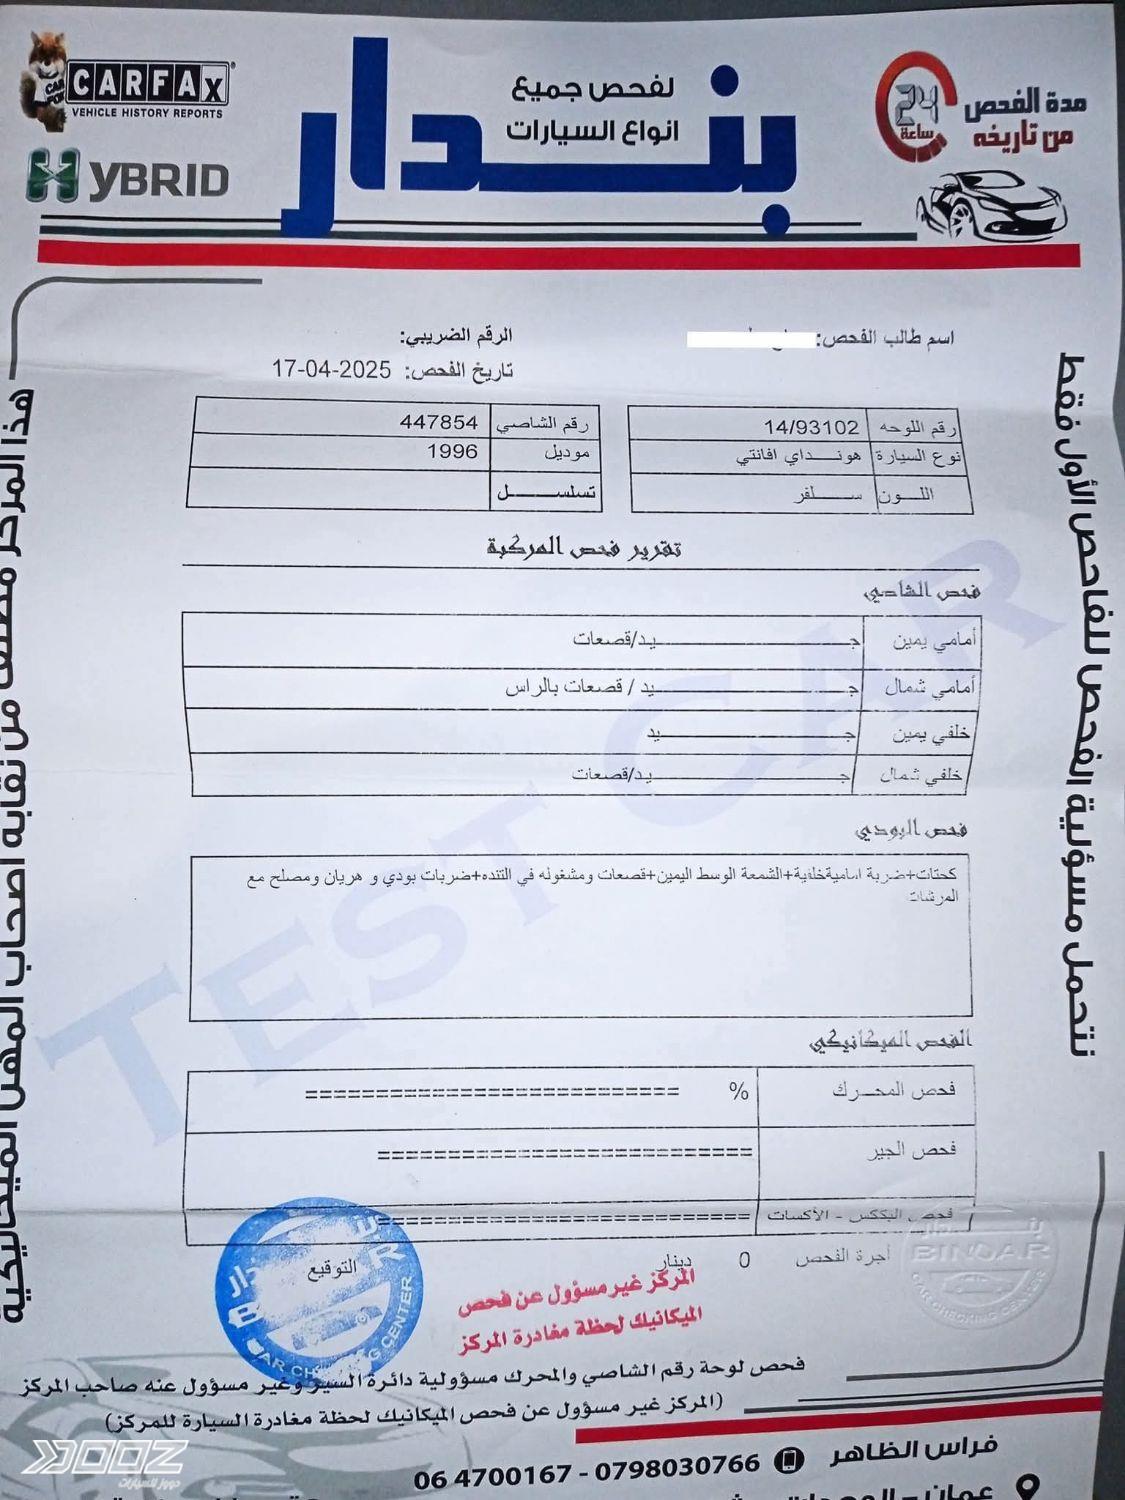 CARFAX
VEHICLE HISTORY REPORTS
HYBRID
بندار
لفحص جميع
انواع السيارات
مدة الفحص 24 ساعة
من تاريخه
اسم طالب الفحص:
الرقم الضريبي:
تاريخ الفحص: 17-04-2025
رقم اللوحه 14/93102
رقم الشاصي 447854
نوع السيارة هونـــداي افانتي
موديل 1996
اللـــون ســـــلفر
تسلســـــــل
تقرير فحص المركبة
فحص الشاصي
أمامي يمين جـــــــــــــــــــــيد/قصعات
أمامي شمال جـــــــــــــــــــــيد / قصعات بالراس
خلفي يمين جـــــــــــــــــــــيد
خلفي شمال جـــــــــــــــــــــيد/قصعات
فحص البودي
كحتات+ضربة اماميةخلفية+الشمعة الوسط اليمين+قصعات ومشغوله في التنده+ضربات بودي و هريان ومصلح مع
المرشات
الفحص الميكانيكي
فحص المحـــرك % ===========================
فحص الجير ===========================
فحص البككس - الأكسات ===========================
أجرة الفحص 0 دينار
التوقيع
المركز غير مسؤول عن فحص
الميكانيك لحظة مغادرة المركز
BINDAR
CAR CHECKING CENTER
فحص لوحة رقم الشاصي والمحرك مسؤولية دائرة السير وغير مسؤول عنه صاحب المركز
(المركز غير مسؤول عن فحص الميكانيك لحظة مغادرة السيارة للمركز)
فراس الظاهر 0798030766 - 06 4700167
نتحمل مسؤولية الفحص للفاحص الأول فقط
هذا المركز مصنف من نقابة اصحاب المهن الميكانيكية
TEST CAR
DOOZ
دووز للسيارات